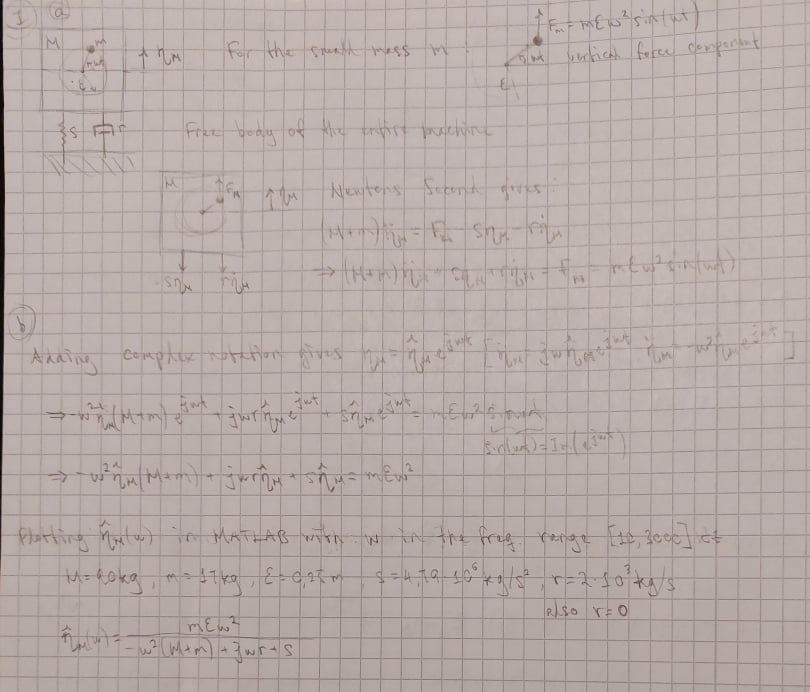 1 a
M m ↑ η_M For the small mass m : F_m = mεω² sin(ωt)
ωt vertical force component
ε
s r Free body of the entire machine
M F_m ↑ η_M Newtons Second gives :
(m+M) η̈_M = F_m - sη_M - rη̇_M
sη_M rη̇_M ⇒ (m+M) η̈_M + rη̇_M + sη_M = F_m = mεω² sin(ωt)
b
Adding complex notation gives η_M = η̂_M e^{jωt} [η̇_M = jωη̂_M e^{jωt}, η̈_M = -ω²η̂_M e^{jωt}]
⇒ -ω²η̂_M(M+m) e^{jωt} + jωrη̂_M e^{jωt} + sη̂_M e^{jωt} = mεω²
sin(ωt) = Im(e^{jωt})
⇒ -ω²η̂_M(M+m) + jωrη̂_M + sη̂_M = mεω²
Plotting η̂_M(ω) in MATLAB with ω in the freq. range [10,3000]
M=90kg, m=17kg, ε=0,25m, s=4,79·10⁶ kg/s², r=2·10³ kg/s
also r=0
η̂_M(ω) = mεω² / (-ω²(M+m) + jωr + s)